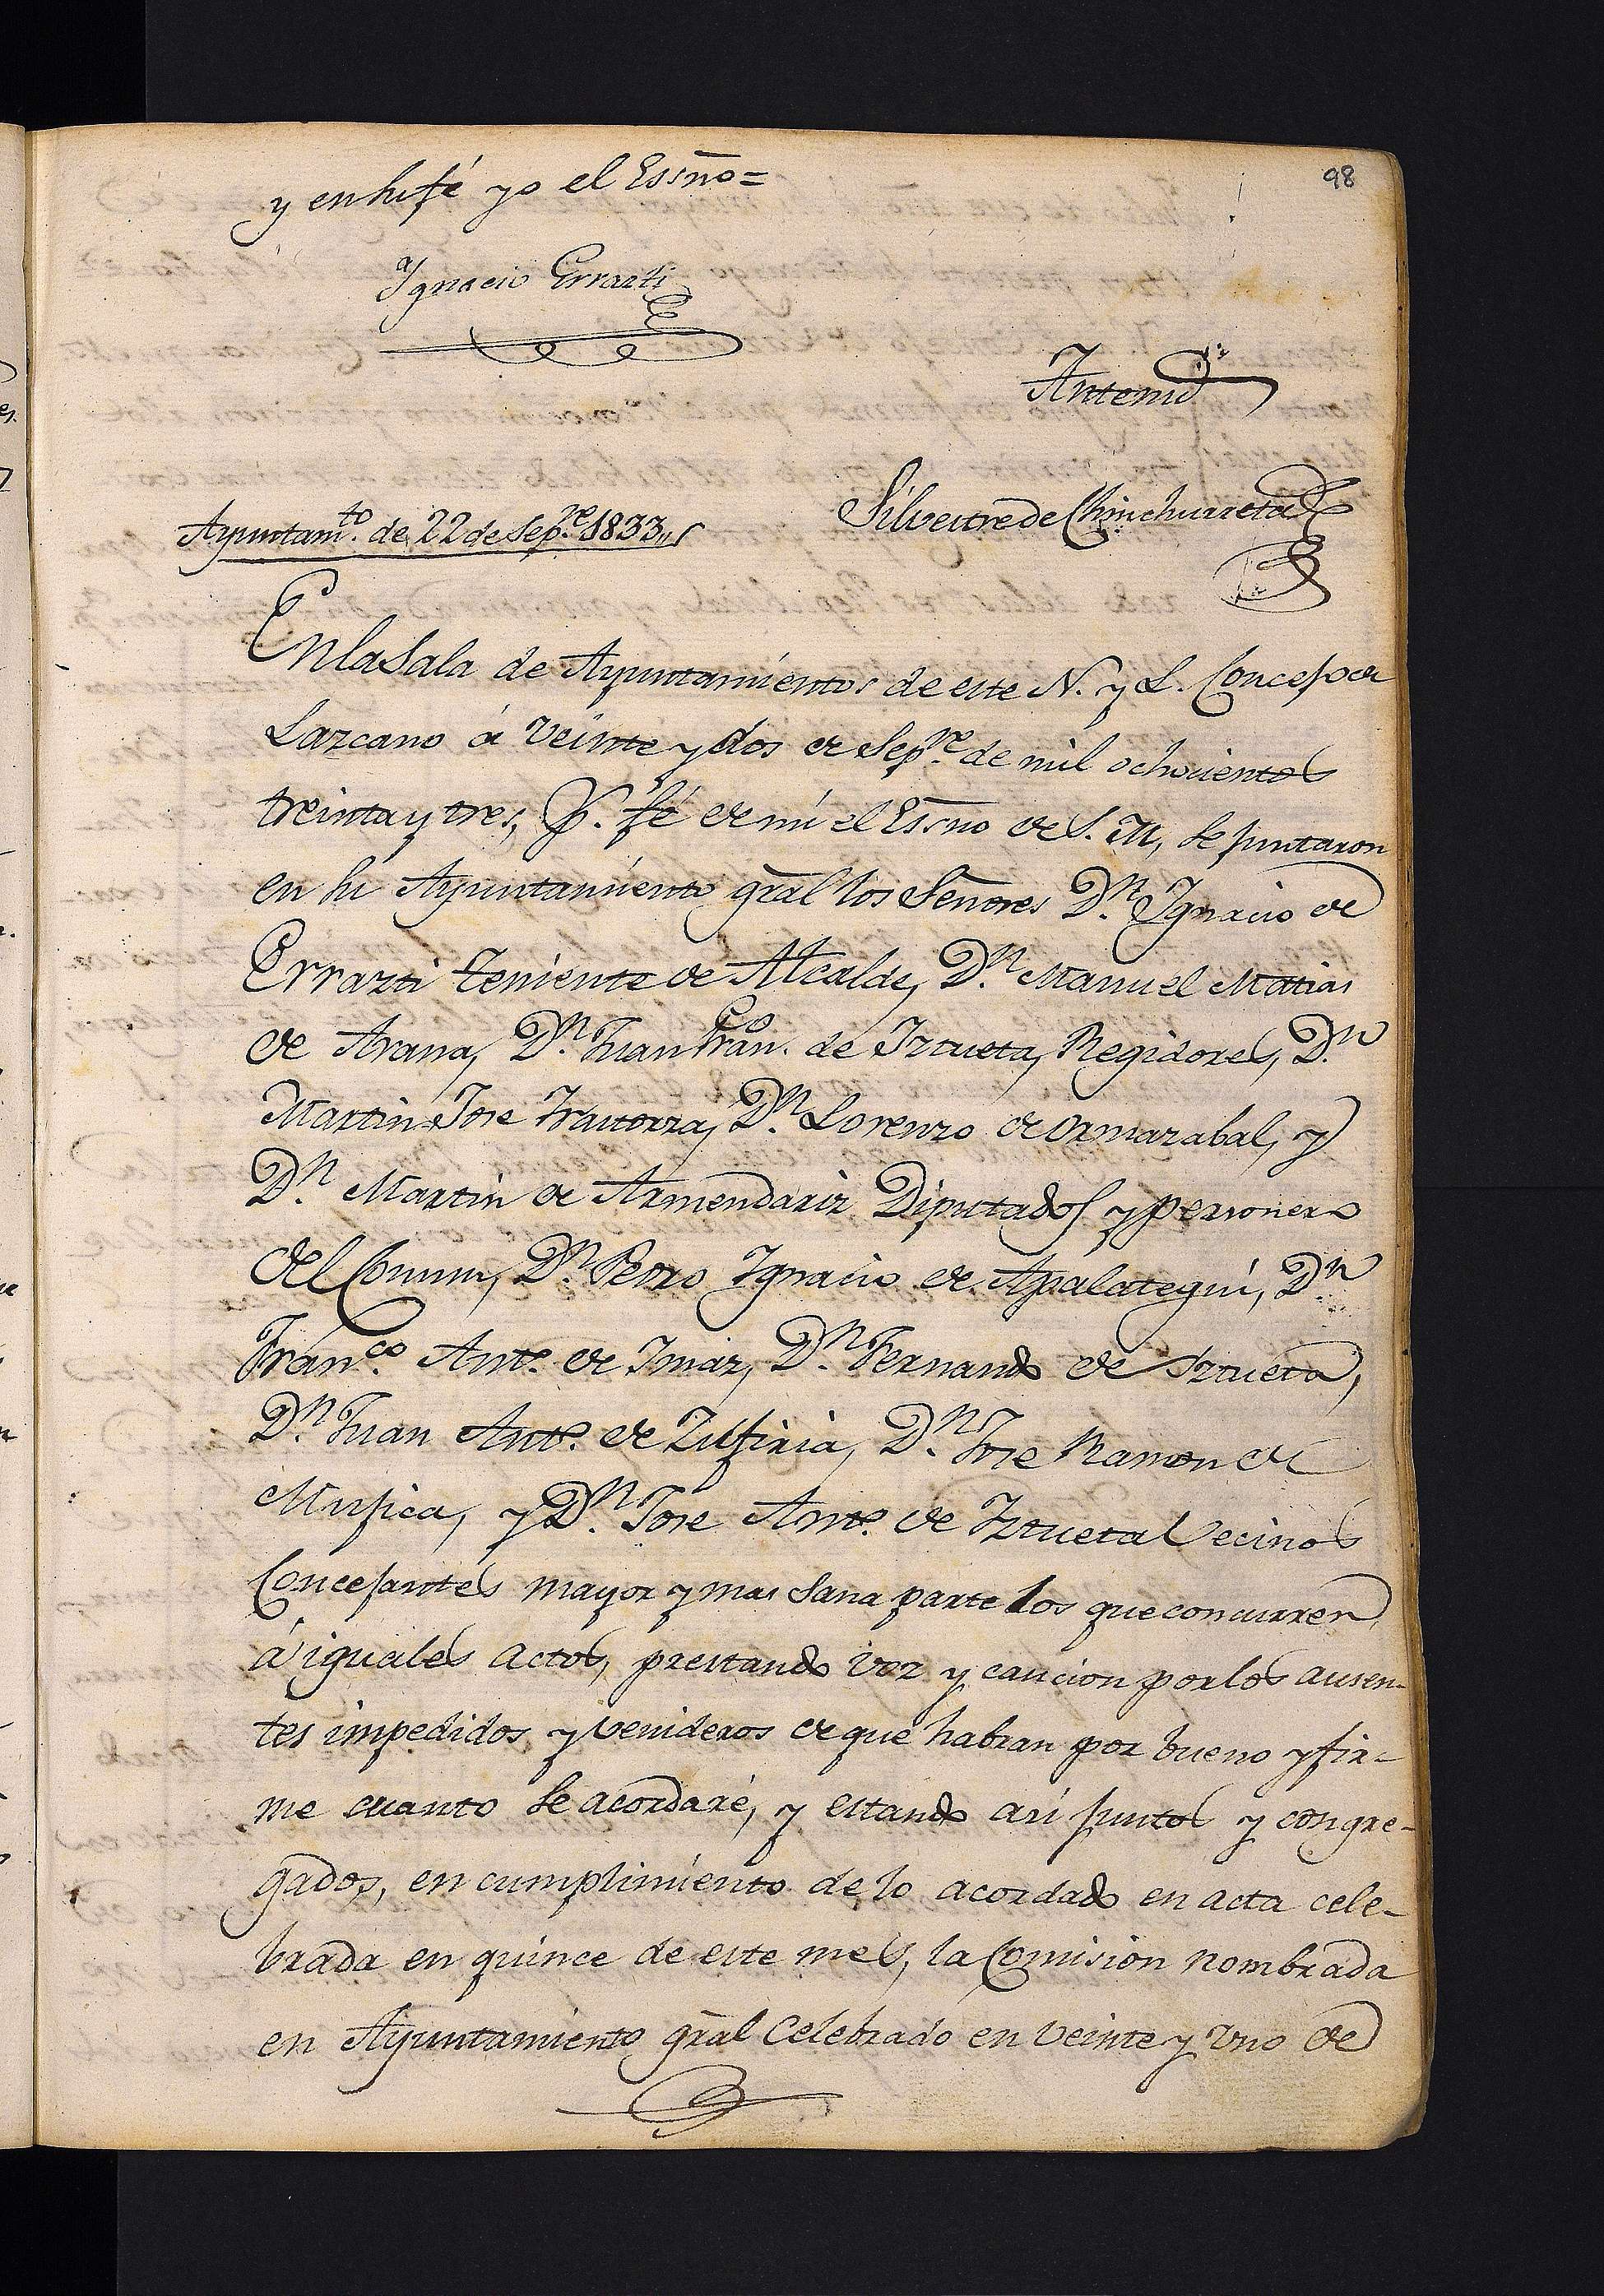 98
y en su fé yo el Essno=
Ignacio Errazti
Antemi
Silvestre de Chinchurreta
Ayuntam.to de 22 de Sep.re 1833,,
En la Sala de Ayuntamientos de este N. y L. Concejo de
Lazcano á veinte y dos de Sep.re de mil ochocientos
treinta y tres, P.r fé de mi el Essno de S. M, se juntaron
en su Ayuntamiento gral los Señores D.n Ignacio de
Errazti Teniente de Alcalde, D.n Manuel Matias
de Arana, D.n Juan Fran.co de Iztueta, Regidores, D.n
Martin Jose D.n Lorenzo de Ormazabal, y
D.n Martin de Armendariz Diputados y personero
del Comun, D.n Pedro Ignacio de Apalategui, D.n
Fran.co Ant.o de Imaz, D.n Fernando de Iztueta,
D.n Juan Ant.o de Zufiria, D.n Jose Ramon de
Mujica, y D.n Jose Ant.o de Iztueta Vecinos
Concejantes mayor y mas sana parte los que concurren
á iguales actos, prestando voz y caucion por los ausen-
tes impedidos y venideros de que habran por bueno y fir-
me cuanto se acordaré, y estando asi juntos y congre-
gados, en cumplimiento de lo acordado en acta cele-
brada en quince de este mes, la Comision nombrada
en Ayuntamiento gral Celebrado en veinte y uno de